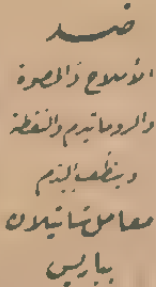 ضد
الأملاح والحصوة
والروماتيزم والنقطة
وينظف الدم
معامل شاتيلان
بباريس